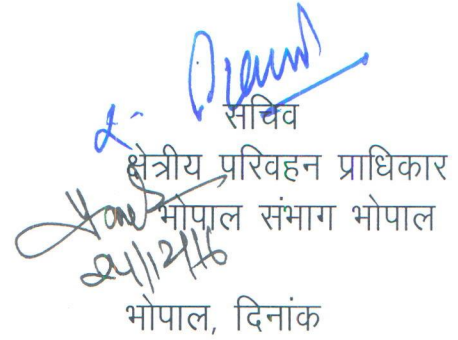 सचिव
क्षेत्रीय परिवहन प्राधिकार
भोपाल संभाग भोपाल
24/12/16
भोपाल, दिनांक